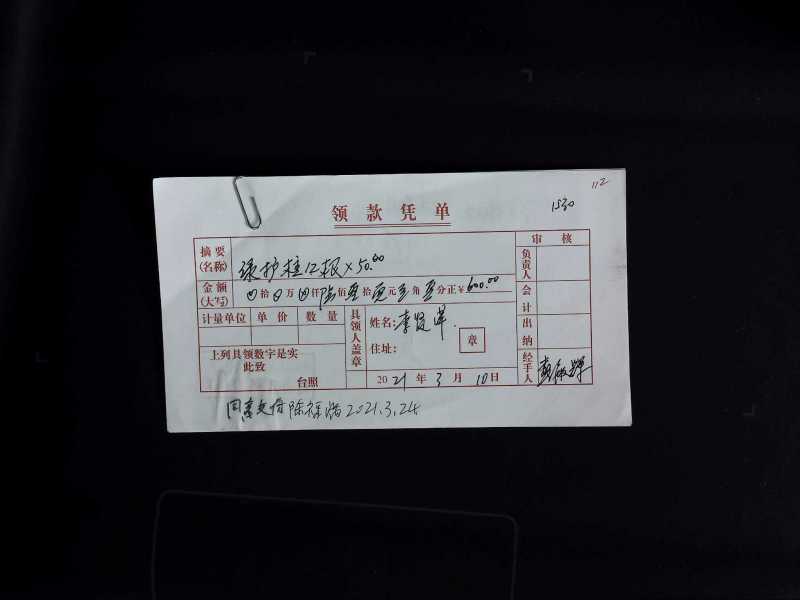 112
1530
领款凭单
摘要(名称) 保护桩12根×50.00
审核
负责人
会计
出纳
经手人
金额(大写) 拾 万 仟陆佰零拾零元零角零分正¥600.00
计量单位 单价 数量
上列具领数字是实
此致
台照
具领人盖章
姓名:李
住址:
章
2021年3月10日
同意支付 陈 2021.3.24